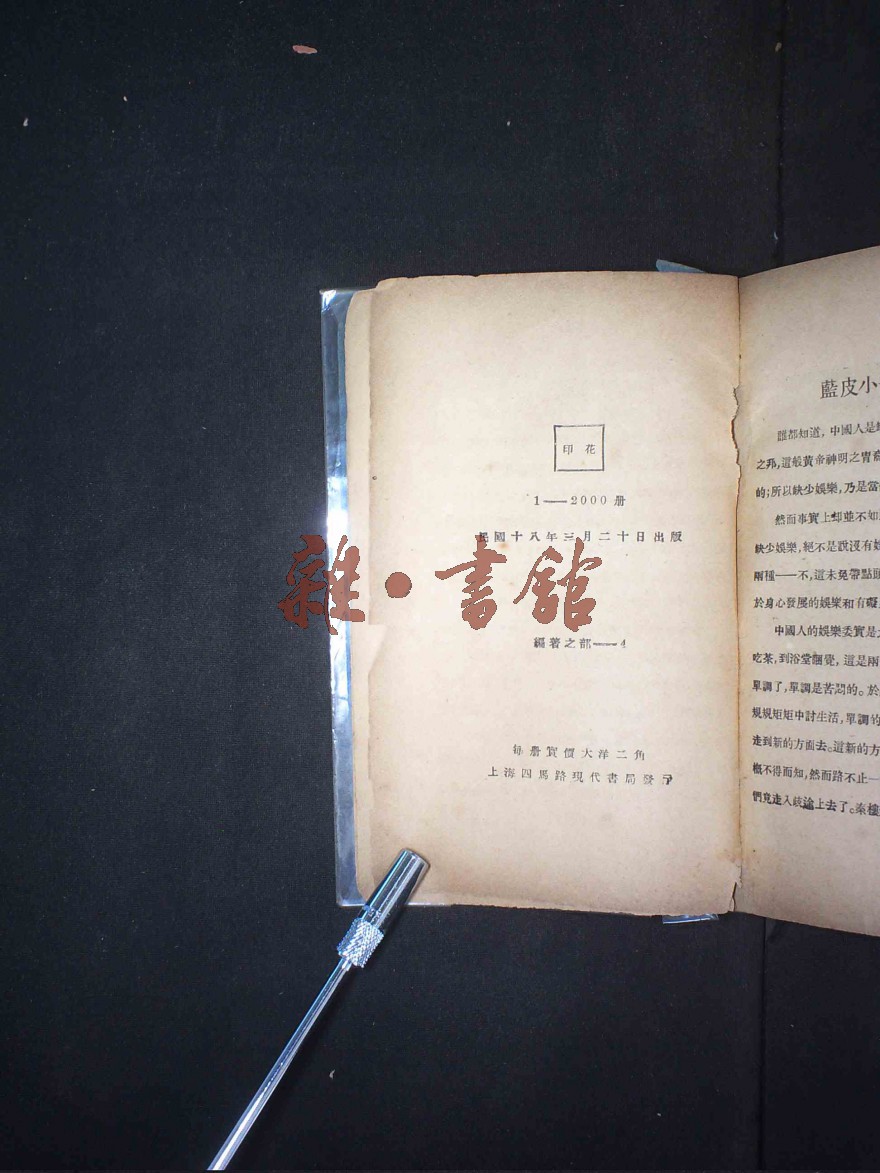 印花
1——2000册
民國十八年三月二十日出版
雜·書館
編著之部——4
每册實價大洋二角
上海四馬路現代書局發行
藍皮小
誰都知道，中國人是
之邦，這般黃帝神明之胄
的；所以缺少娛樂，乃是當
然而事實上却並不如
缺少娛樂，絕不是說沒有
兩種——不，這未免帶點
於身心發展的娛樂和有礙
中國人的娛樂委實是
吃茶，到浴堂睏覺，這是兩
單調了，單調是苦悶的。於
規規矩矩中討生活，單調的
走到新的方面去。這新的方
概不得而知，然而路不止一
們竟走入歧途上去了。秦樓